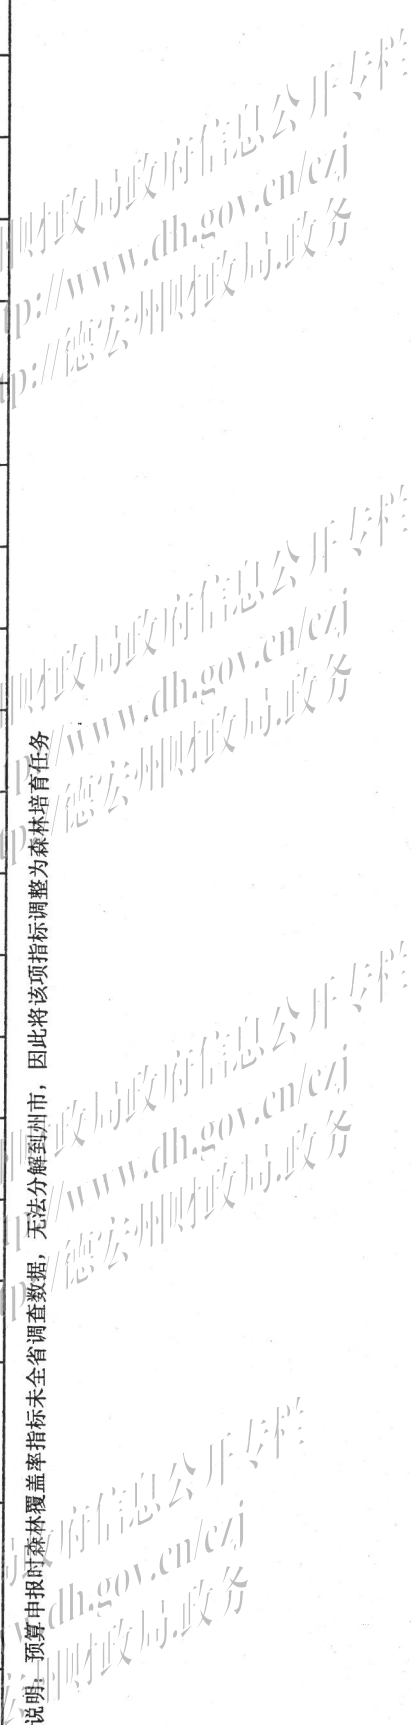 说明：预算申报时森林覆盖率指标未全省调查数据，无法分解到州市，因此将该项指标调整为森林培育任务
财政局政府信息公开专栏
tp://www.dh.gov.cn/czj
tp://德宏州财政局.政务
财政局政府信息公开专栏
tp://www.dh.gov.cn/czj
tp://德宏州财政局.政务
财政局政府信息公开专栏
tp://www.dh.gov.cn/czj
tp://德宏州财政局.政务
政府信息公开专栏
w.dh.gov.cn/czj
宏州财政局.政务